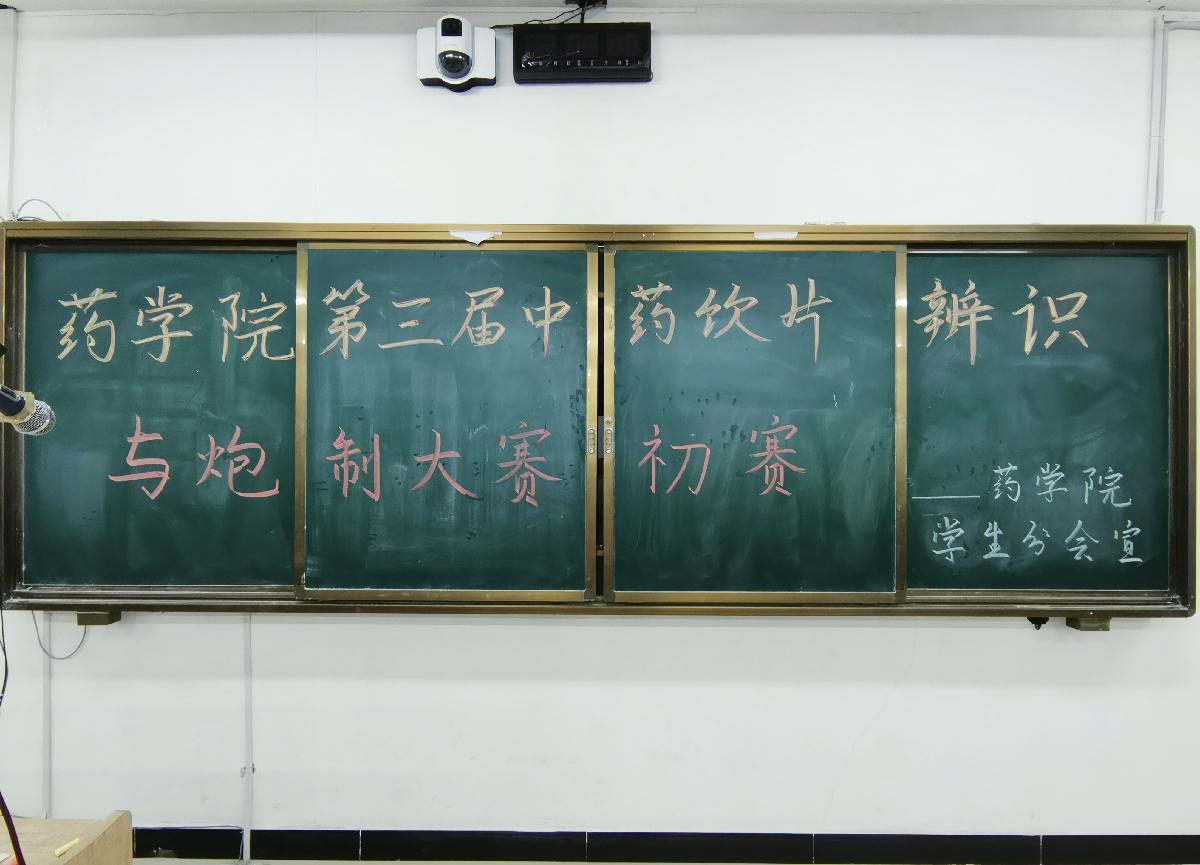 药学院第三届中药饮片辨识
与炮制大赛初赛
——药学院
学生分会宣